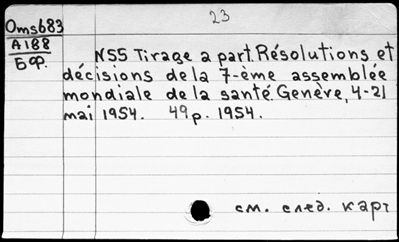 23
Oms683
A188
БФ.
N55 Tirage a part. Résolutions et
décisions de la 7-ème assemblée
mondiale de la santé. Genève, 4-21
mai 1954. 49p. 1954.
см. след. карт